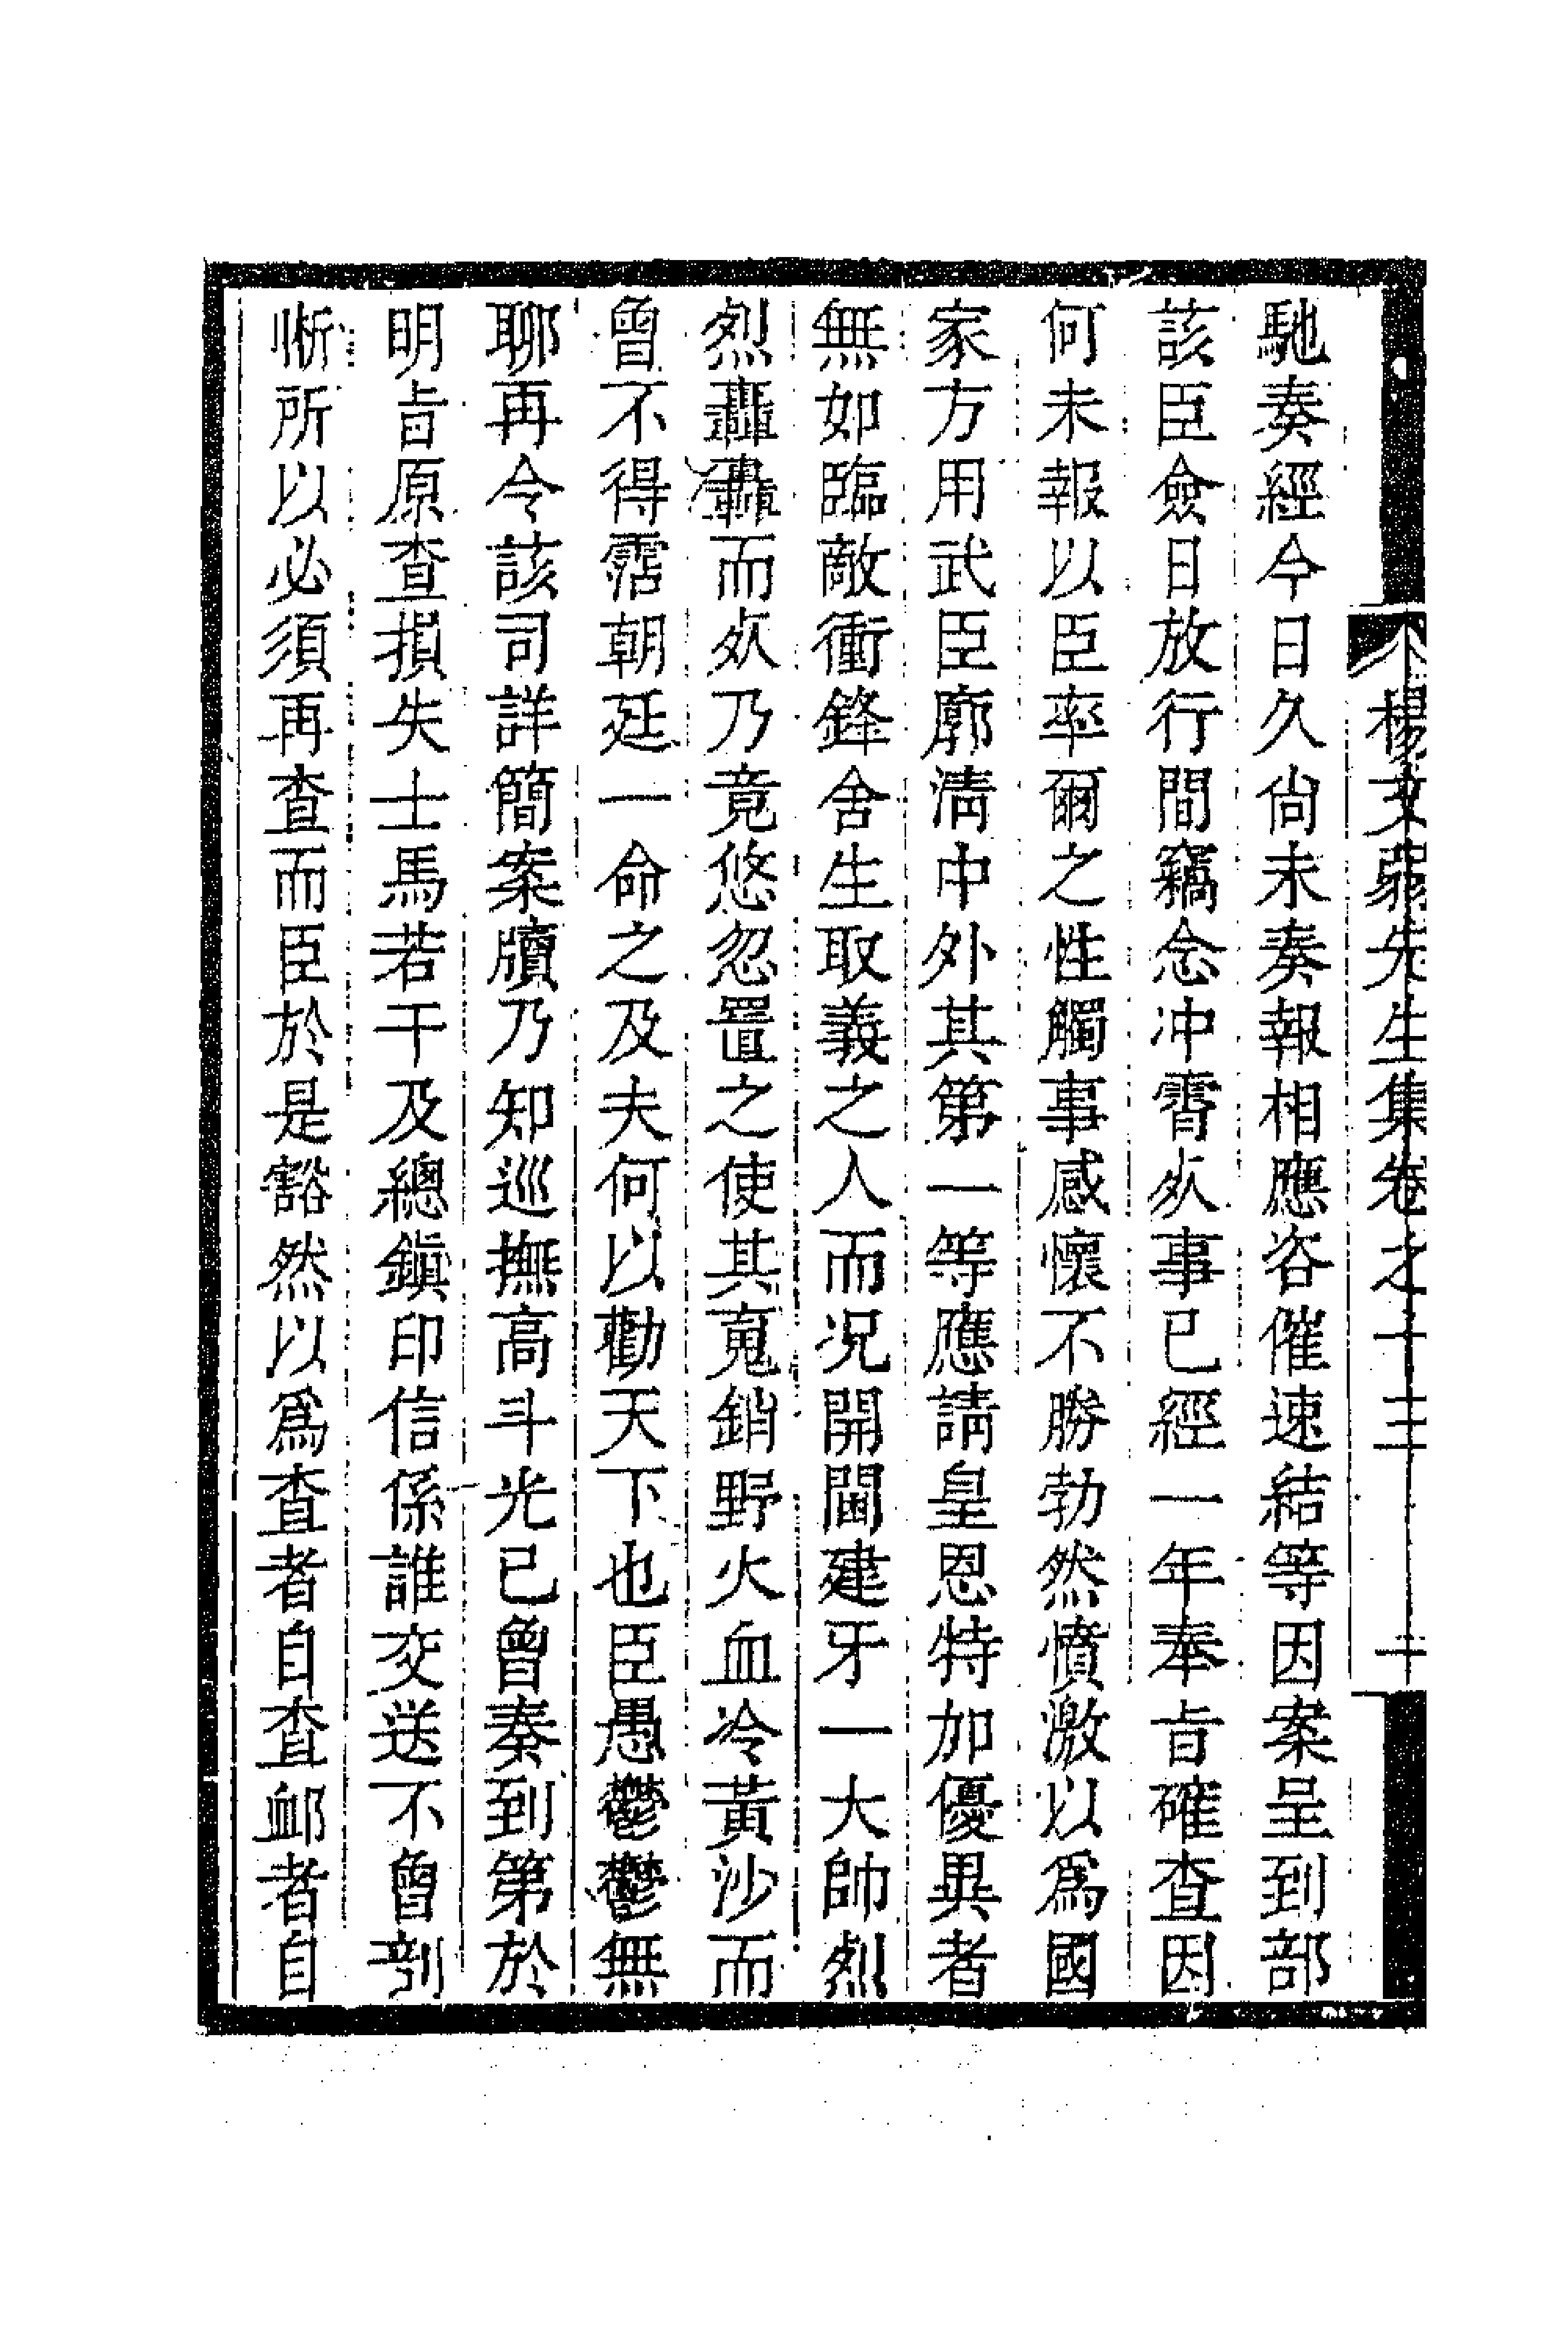 楊文弱先生集卷之十三 十
馳奏經今日久尙未奏報相應咨催速結等因案呈到部
該臣僉日放行間竊念冲霄㱙事已經一年奉㫖確查因
何未報以臣率爾之性觸事感懷不勝勃然憤激以爲國
家方用武臣廓淸中外其第一等應請皇恩特加優異者
無如臨敵衝鋒舍生取義之人而况開閫建牙一大帥烈
烈轟轟而㱙乃竟悠忽置之使其䰟銷野火血冷黃沙而
曾不得霑朝廷一命之及夫何以勸天下也臣愚鬱鬱無
聊再令該司詳簡案牘乃知巡撫高斗光已曾奏到第於
明㫖原查損失士馬若干及總鎭印信係誰交送不曾剖
晰所以必須再查而臣於是豁然以爲查者自查䘏者自